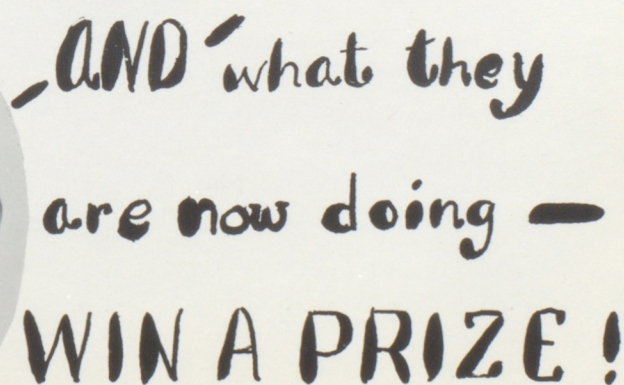 - AND - what they
are now doing -
WIN A PRIZE!